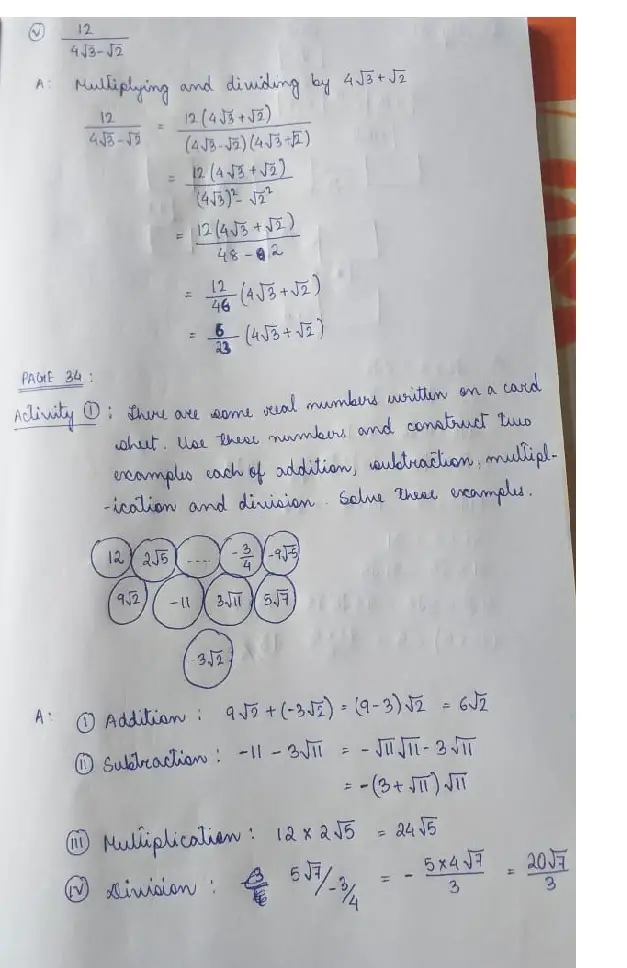 (v) 12 / 4√3-√2
A: Multiplying and dividing by 4√3+√2
12 / 4√3-√2 = 12(4√3+√2) / (4√3-√2)(4√3+√2)
= 12(4√3+√2) / (4√3)² - √2²
= 12(4√3+√2) / 48-2
= 12/46 (4√3+√2)
= 6/23 (4√3+√2)
PAGE 34:
Activity ①: There are some real numbers written on a card
sheet. Use these numbers and construct two
examples each of addition, subtraction, multipl-
-ication and division. Solve these examples.
12 2√5 .... -3/4 -9√5
9√2 -11 3√11 5√7
-3√2
A: (i) Addition: 9√2+(-3√2) = (9-3)√2 = 6√2
(ii) Subtraction: -11 - 3√11 = -√11√11 - 3√11
= -(3+√11)√11
(iii) Multiplication: 12 × 2√5 = 24√5
(iv) Division: 5√7/-3/4 = - 5×4√7 / 3 = 20√7 / 3